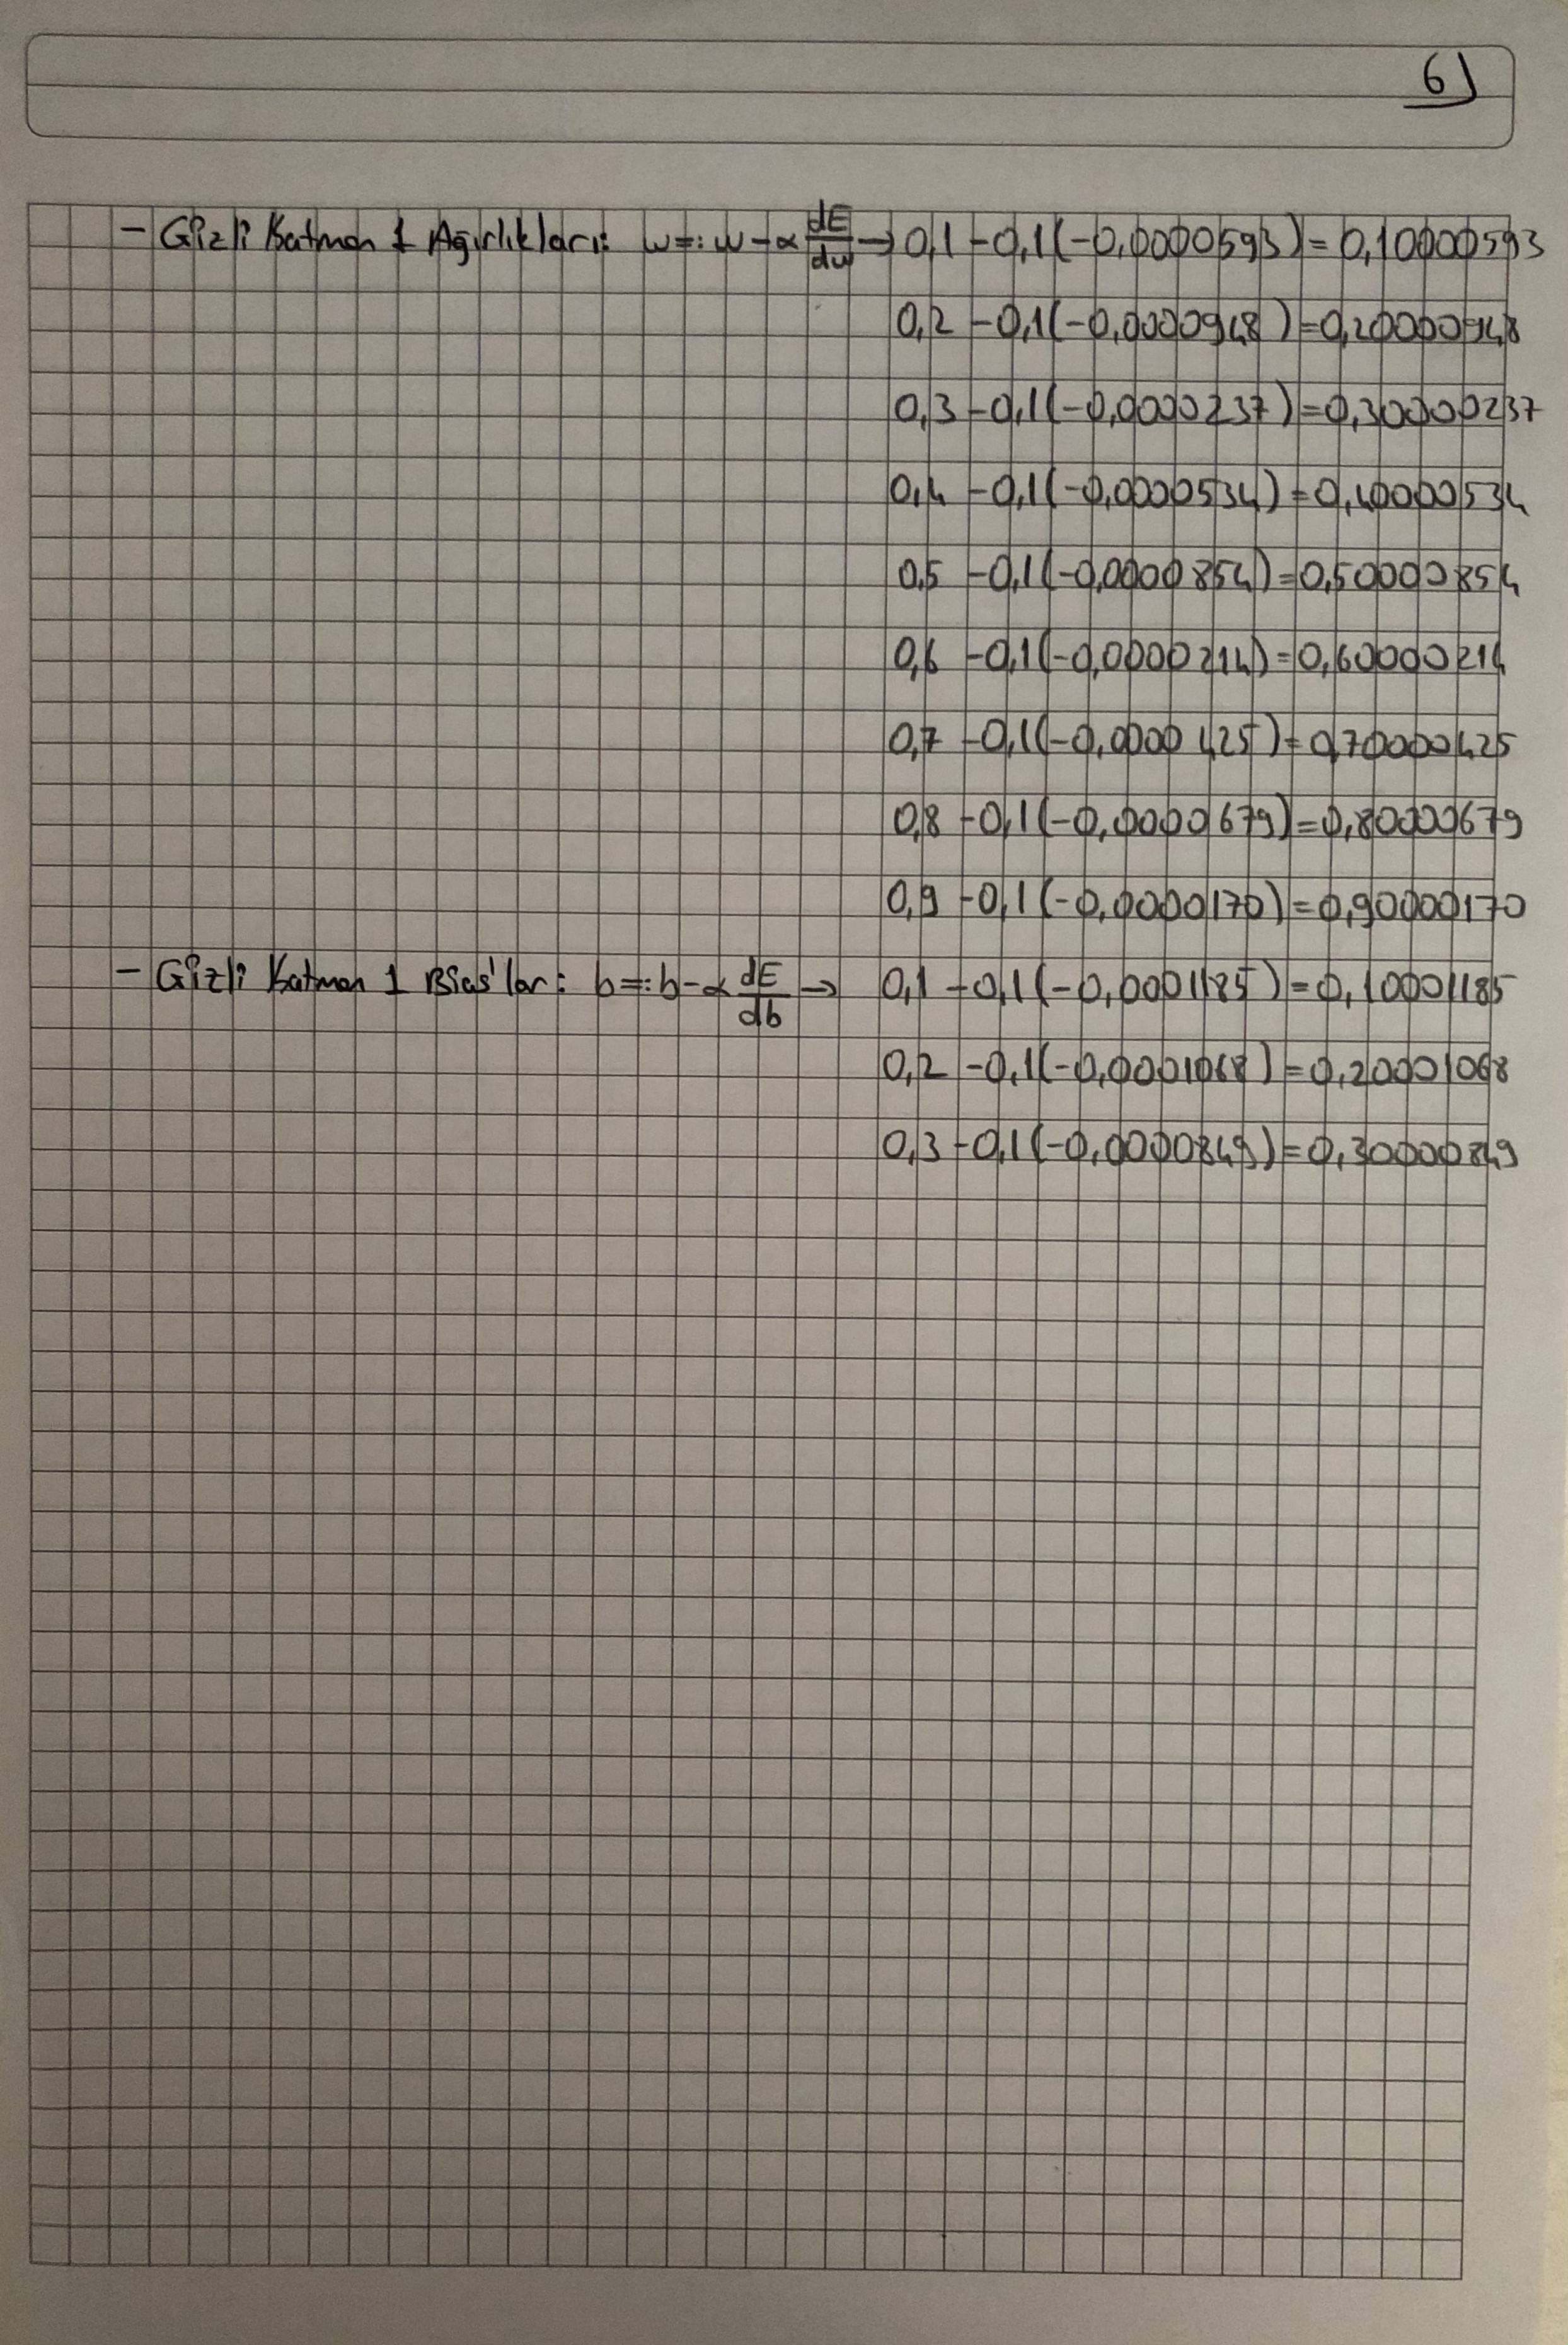 6)
- Gizli Katman 1 Ağırlıkları: w=: w - α dE/dw → 0,1 - 0,1(-0,0000593) = 0,10000593
0,2 - 0,1(-0,0000948) = 0,20000948
0,3 - 0,1(-0,0000237) = 0,30000237
0,4 - 0,1(-0,0000534) = 0,40000534
0,5 - 0,1(-0,0000854) = 0,50000854
0,6 - 0,1(-0,0000214) = 0,60000214
0,7 - 0,1(-0,0000425) = 0,70000425
0,8 - 0,1(-0,0000679) = 0,80000679
0,9 - 0,1(-0,0000170) = 0,90000170
- Gizli Katman 1 Bias'lar: b=: b - α dE/db → 0,1 - 0,1(-0,0001185) = 0,10001185
0,2 - 0,1(-0,0001068) = 0,20001068
0,3 - 0,1(-0,0000849) = 0,30000849